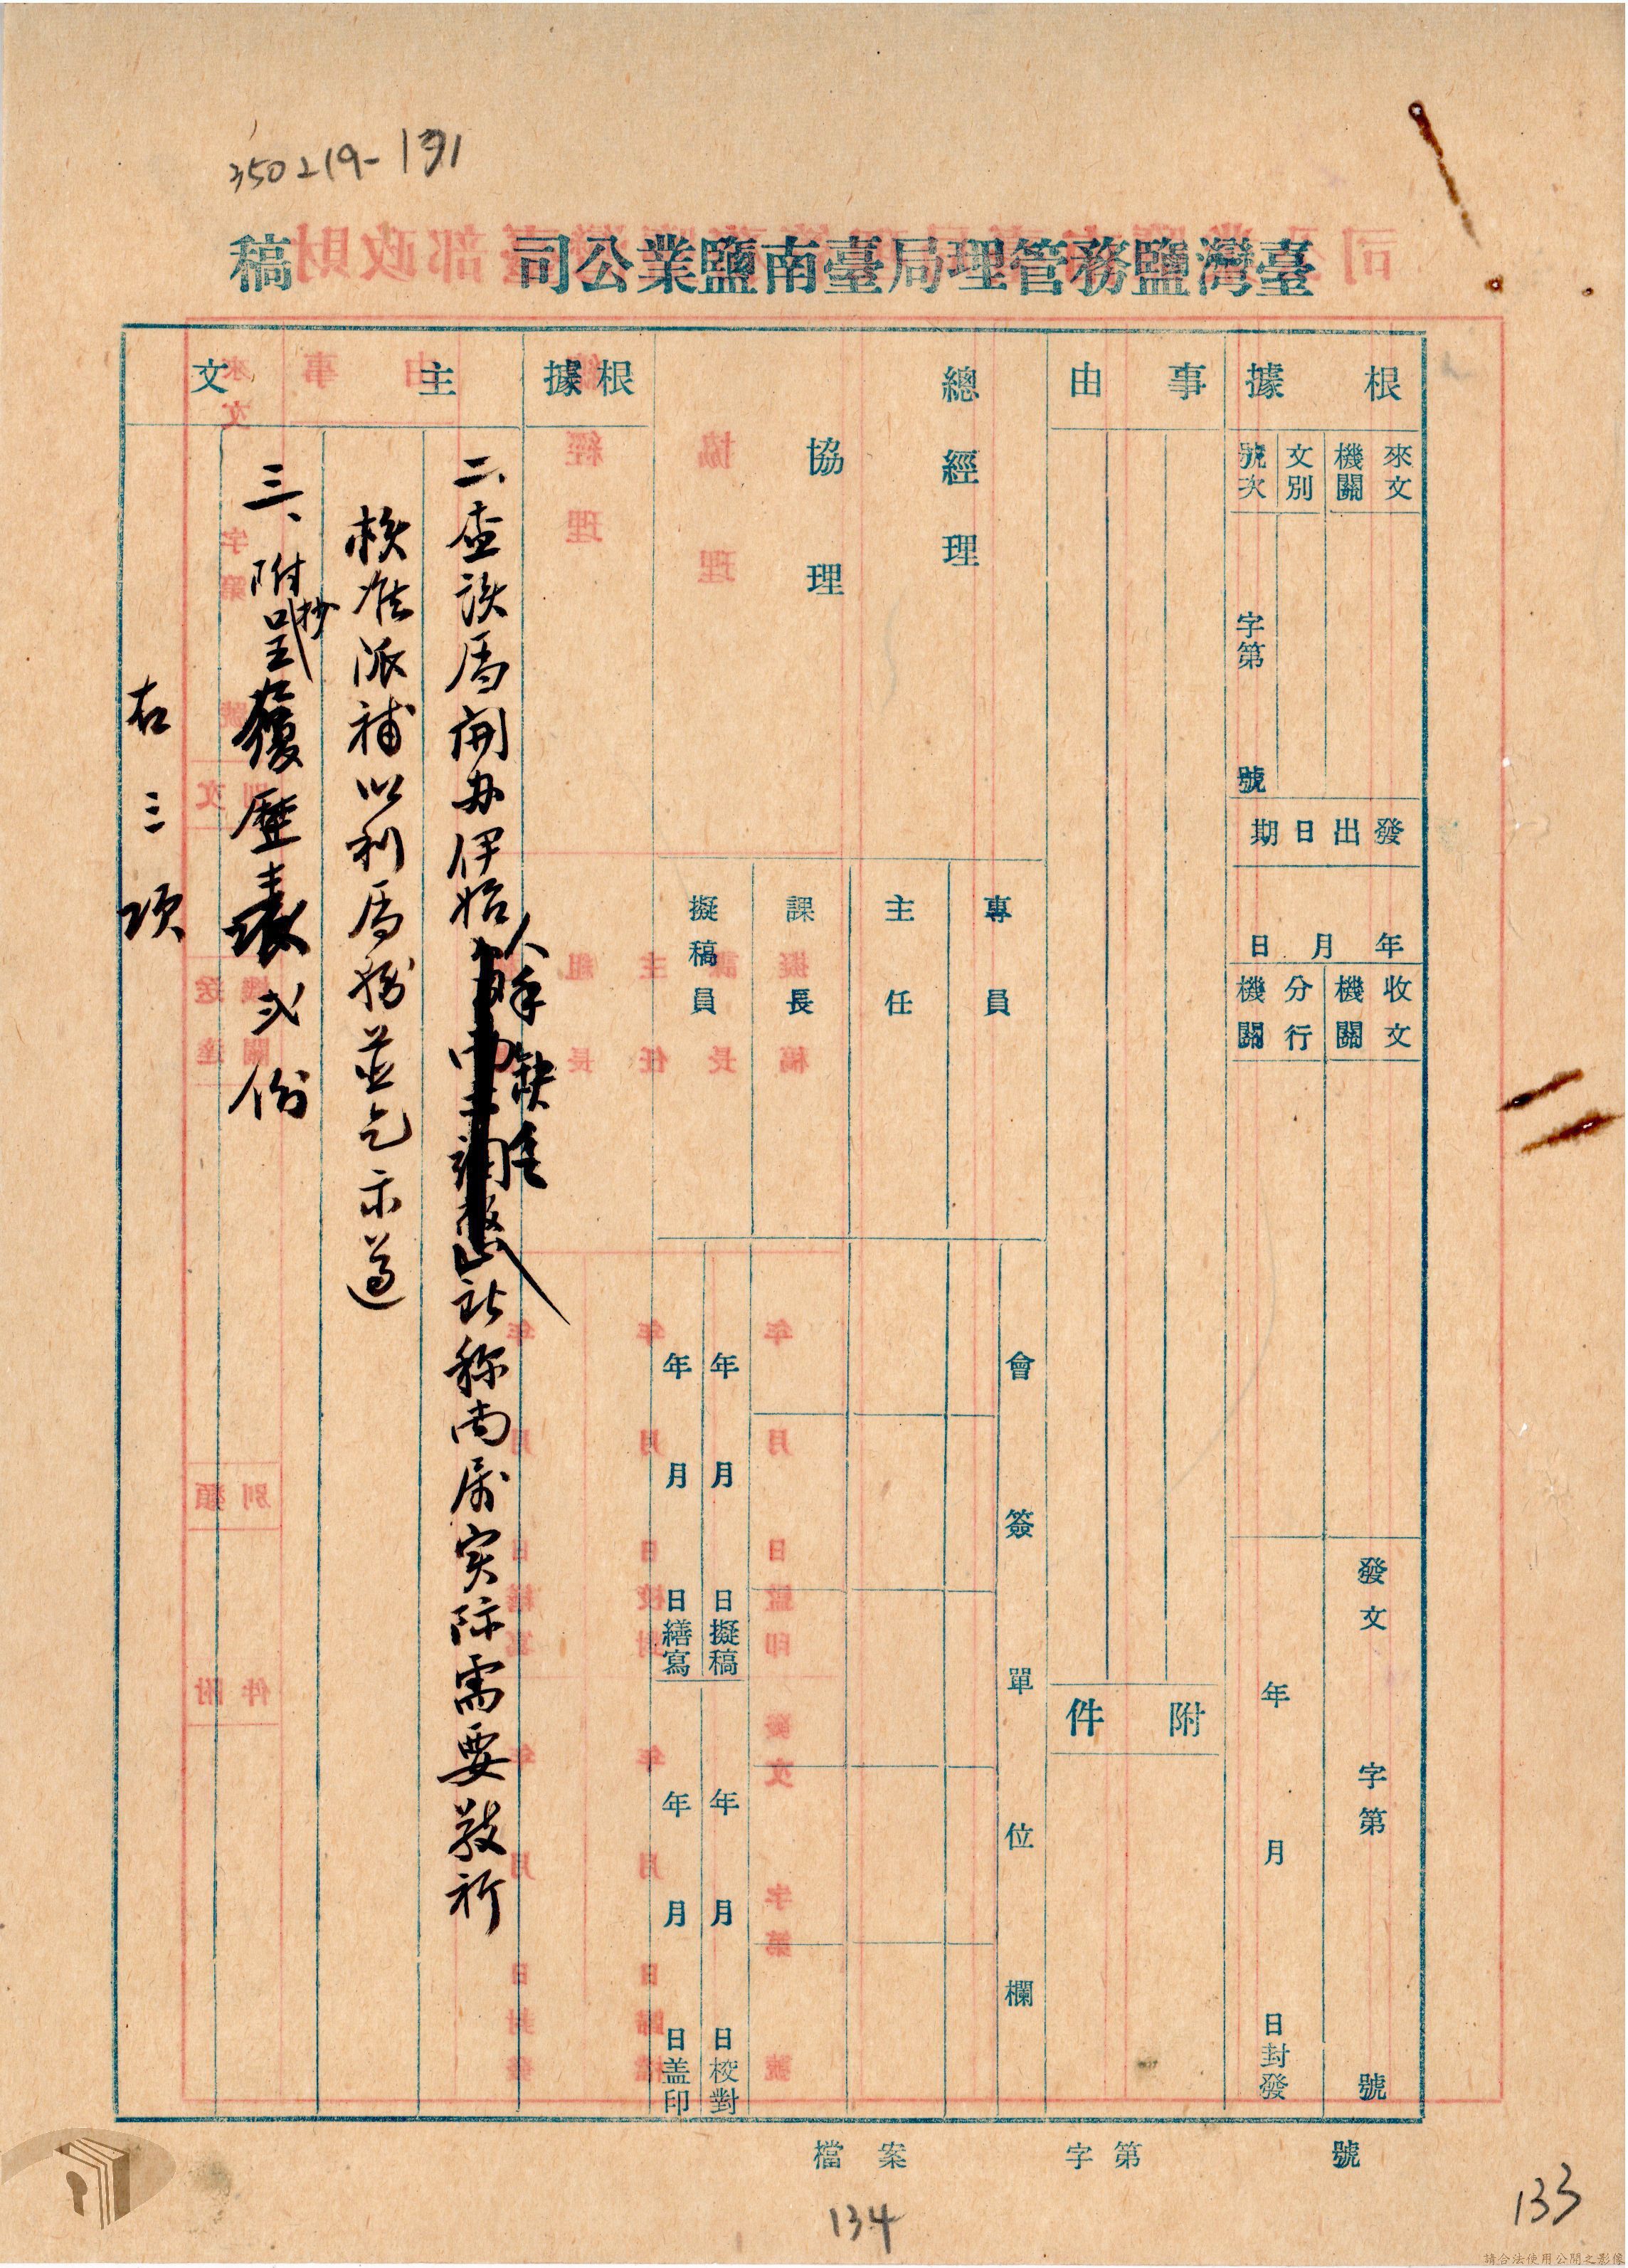 350219-131
臺灣鹽務管理局臺南鹽業公司 稿
根據
來文機關
文別
號次
字第 號
發出日期
年 月 日
收文機關
分行機關
發文 字第 號
年 月 日封發
事由
附件
總經理
協理
專員
主任
課長
擬稿員
會簽單位欄
年 月 日擬稿
年 月 日繕寫
年 月 日校對
年 月 日盖印
根據
主文
二、查該局開办伊始人手缺乏所称尚属实际需要敬祈
核准派補以利局務並乞示遵
三、附抄呈履歷表弍份
右三項
檔案 字第 號
134
133
請合法使用公開之影像